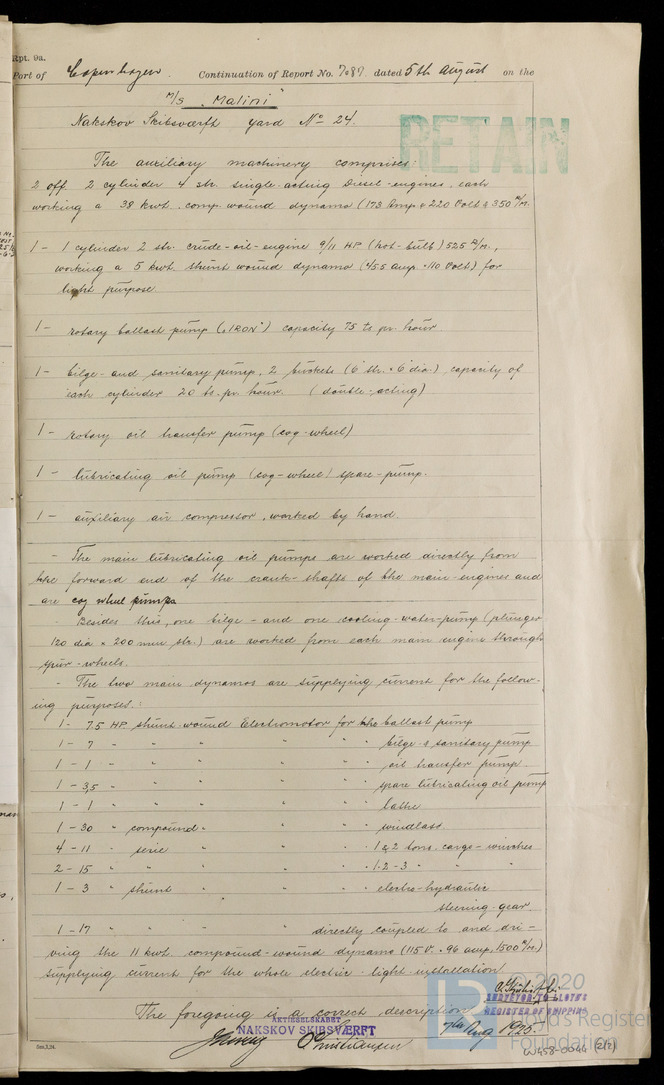 Rpt. 9a.
Port of Copenhagen. Continuation of Report No. 7087. dated 5th August on the
M/S "Malini"
Nakskov Skibsværft yard No 24.
RETAIN
The auxiliary machinery comprises:
2 off. 2 cylinder 4 str. single-acting Diesel-engines, each
working a 38 kwt. comp. wound dynamo (173 Amp & 220 Volt & 350 R/M.
1 - 1 cylinder 2 str. crude-oil-engine 9/11 HP (hot-bulb) 525 R/M.,
working a 5 kwt. shunt wound dynamo (45.5 amp. 110 Volt) for
light purpose.
1 - rotary ballast pump ("IRON") capacity 75 ts pr. hour
1 - bilge- and sanitary pump, 2 buckets (6" str. × 6" dia.) capacity of
each cylinder 20 ts. pr. hour. (double-acting)
1 - rotary oil transfer pump (cog-wheel)
1 - lubricating oil pump (cog-wheel) spare-pump.
1 - auxiliary air compressor, worked by hand.
- The main lubricating oil pumps are worked directly from
the forward end of the crank-shafts of the main-engines and
are cog wheel pumps
Besides this, one bilge- and one cooling-water-pump (plunger
120 dia × 200 mm str.) are worked from each main engine through
spur-wheels.
- The two main dynamos are supplying current for the follow-
ing purposes:
1 - 7.5 HP shunt wound Electromotor for the ballast pump
1 - 7 " " " " " " bilge & sanitary pump
1 - 1 " " " " " " oil transfer pump.
1 - 3,5 " " " " " " spare lubricating oil pump
1 - 1 " " " " " " lathe
1 - 30 " compound " " " " windlass.
4 - 11 " serie " " " " 1 & 2 tons. cargo-winches
2 - 15 " " " " " " 1-2-3 " " "
1 - 3 " shunt " " " " electro-hydraulic
steering-gear.
1 - 17 " " " " directly coupled to and dri-
ving the 11 kwt. compound-wound dynamo (115 V. × 96 amp, 1500 R/M.)
supplying current for the whole electric-light-installation
SURVEYOR TO LLOYD'S
REGISTER OF SHIPPING
The foregoing is a correct description
AKTIESELSKABET
NAKSKOV SKIBSVÆRFT
7th Aug 1925.
© 2020
Lloyd's Register
Foundation
5m,3,24.
W458-0044 (2/2)